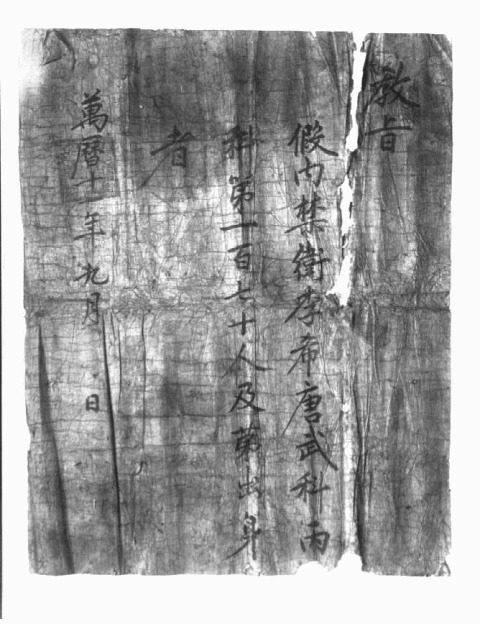 教旨
假內禁衛李希唐武科丙
科第一百七十人及第出身
者
萬曆十一年九月　日